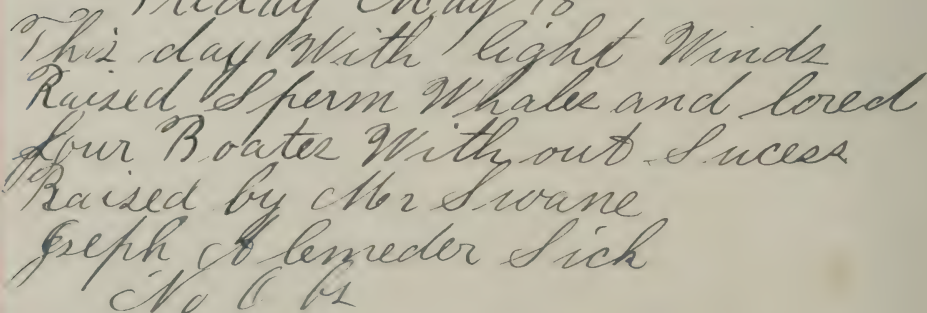 Friday May 18
This day With light Winds
Raised Sperm Whales and lored
four Boates With out Sucess
Raised by Mr Swane
Joseph Alemeder Sick
No Obs